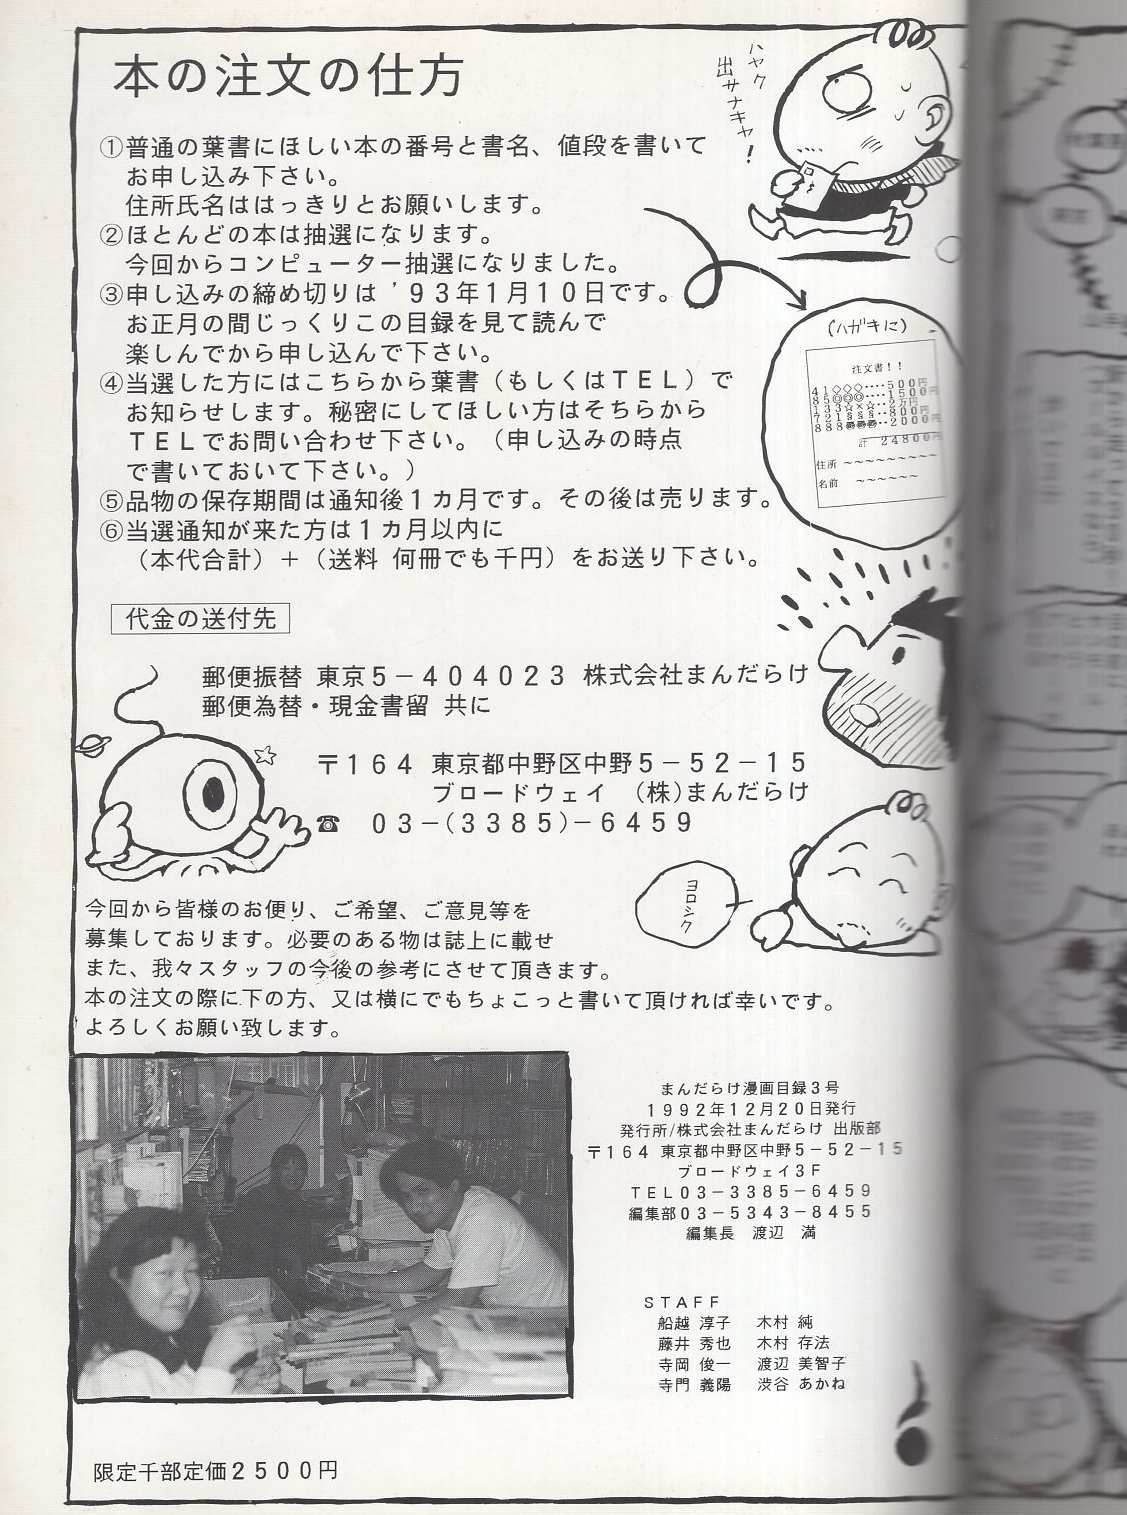 本の注文の仕方
ハヤク
出サナキャ!
①普通の葉書にほしい本の番号と書名、値段を書いて
お申し込み下さい。
住所氏名ははっきりとお願いします。
②ほとんどの本は抽選になります。
今回からコンピューター抽選になりました。
③申し込みの締め切りは ’93年1月10日です。
お正月の間じっくりこの目録を見て読んで
楽しんでから申し込んで下さい。
④当選した方にはこちらから葉書（もしくはTEL）で
お知らせします。秘密にしてほしい方はそちらから
TELでお問い合わせ下さい。（申し込みの時点
で書いておいて下さい。）
⑤品物の保存期間は通知後1カ月です。その後は売ります。
⑥当選通知が来た方は1カ月以内に
（本代合計）＋（送料 何冊でも千円）をお送り下さい。
(ハガキに)
注文書！！
41◇◇◇‥‥500円
85◎◎◎‥‥1500円
133☆×☆‥2万円
721§§§‥800円
計 24800円
住所 ～～～～～～～～～
名前 ～～～～～～
代金の送付先
郵便振替 東京5－404023 株式会社まんだらけ
郵便為替・現金書留 共に
〒164 東京都中野区中野5－52－15
ブロードウェイ （株）まんだらけ
☎ 03－(3385)－6459
ヨロシク
今回から皆様のお便り、ご希望、ご意見等を
募集しております。必要のある物は誌上に載せ
また、我々スタッフの今後の参考にさせて頂きます。
本の注文の際に下の方、又は横にでもちょこっと書いて頂ければ幸いです。
よろしくお願い致します。
まんだらけ漫画目録3号
1992年12月20日発行
発行所/株式会社まんだらけ 出版部
〒164 東京都中野区中野5－52－15
ブロードウェイ3F
TEL03－3385－6459
編集部03－5343－8455
編集長 渡辺 満
STAFF
船越 淳子 木村 純
藤井 秀也 木村 存法
寺岡 俊一 渡辺 美智子
寺門 義陽 渋谷 あかね
限定千部定価2500円